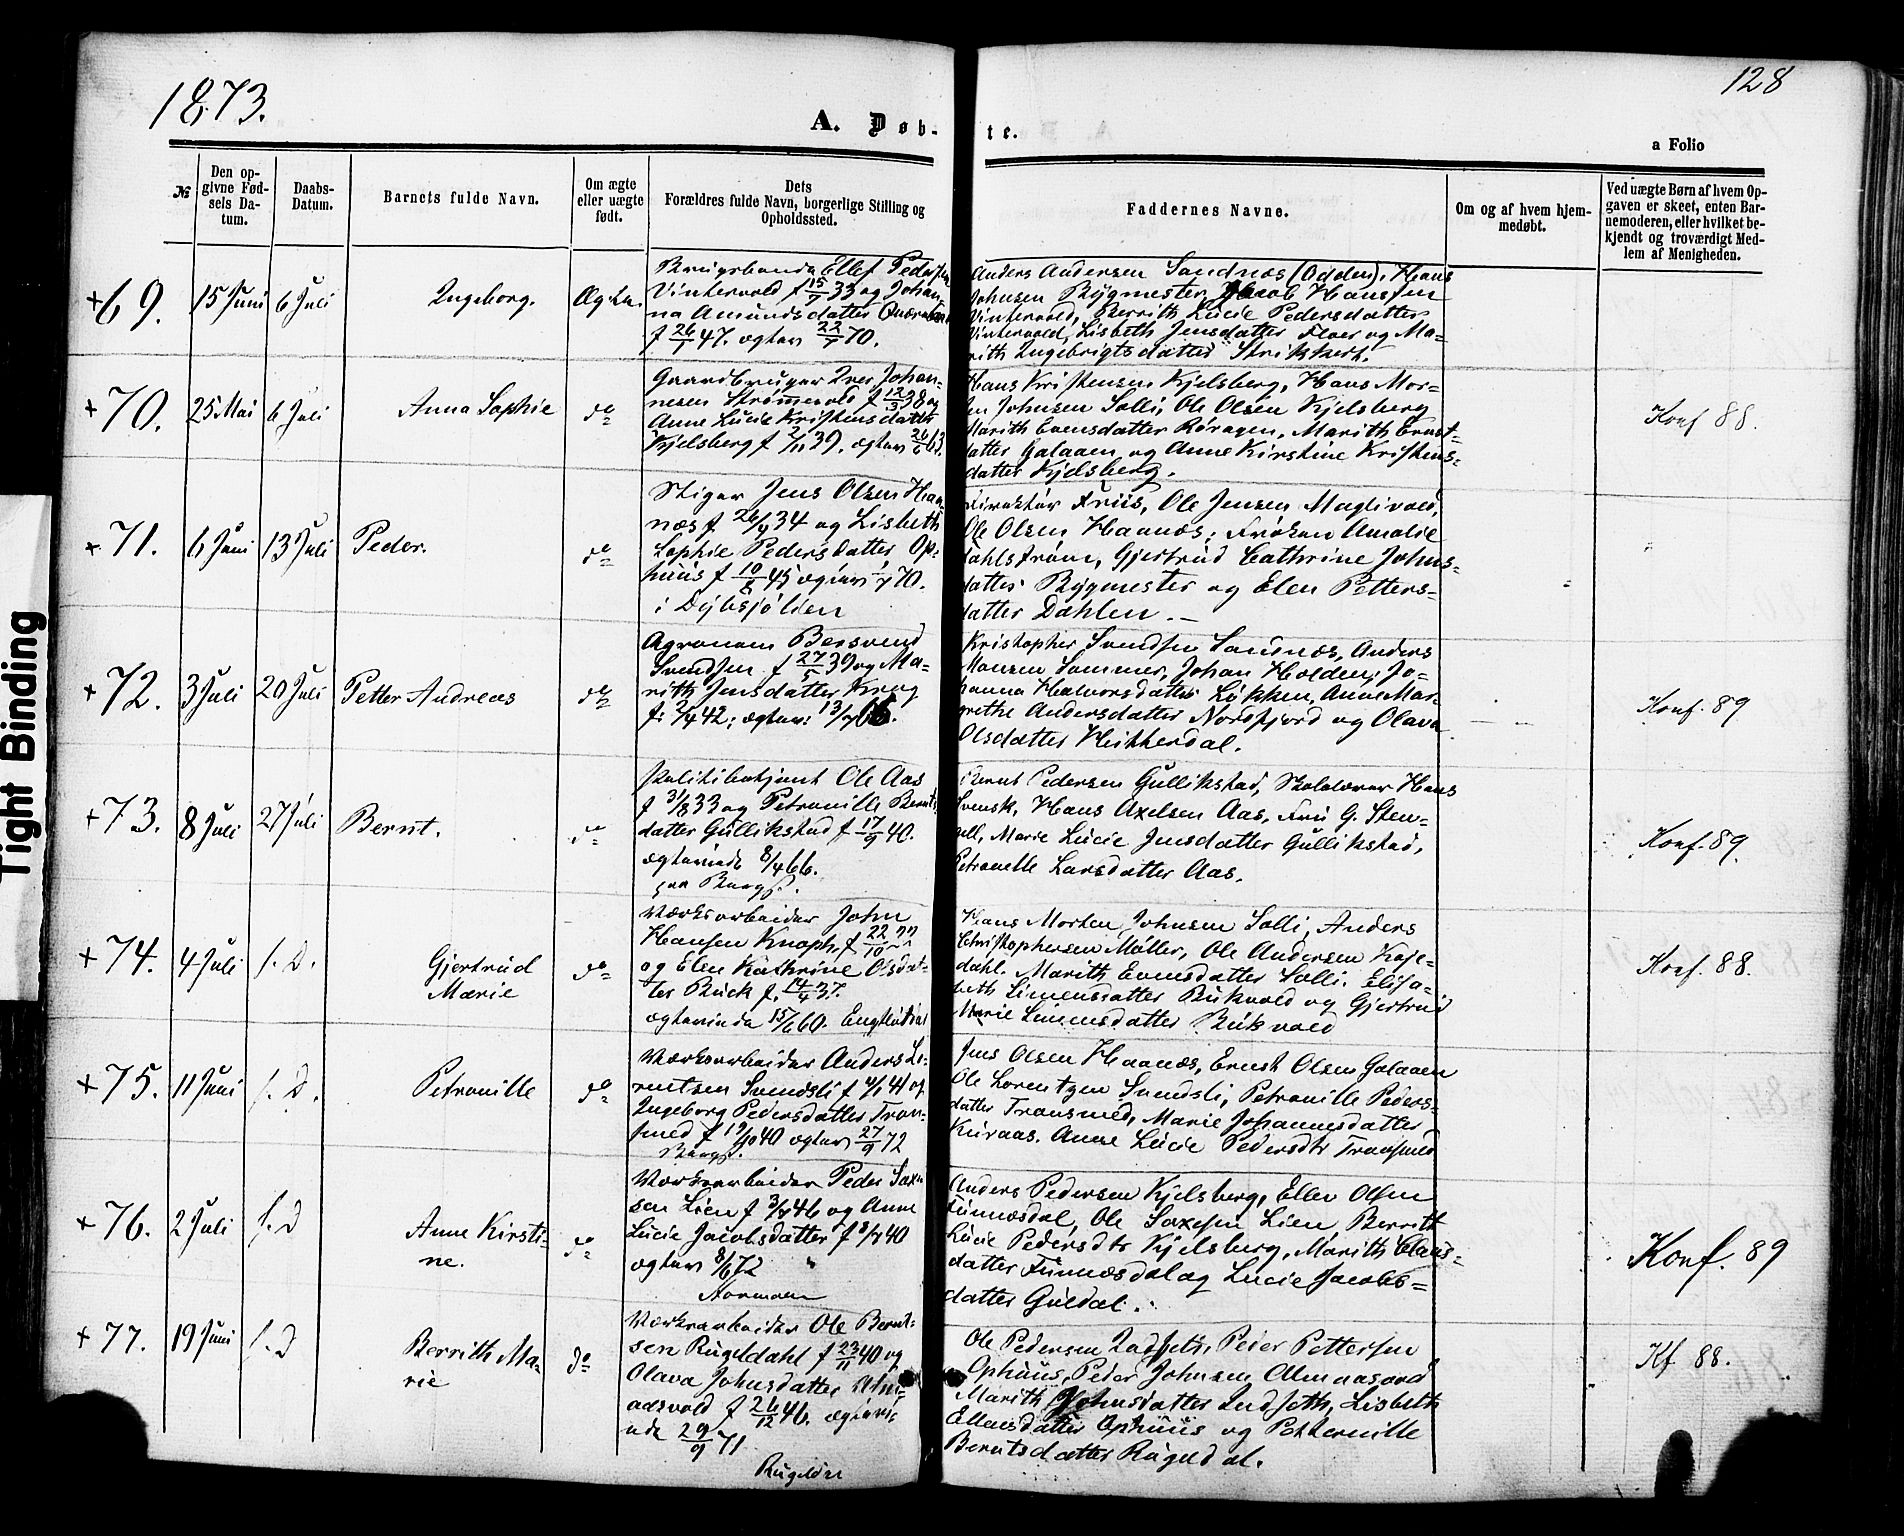 1873.
128
A. Døb-
te.
a Folio
№
Den op-
givne Fød-
sels Da-
tum.
Daabs-
Datum.
Barnets fulde Navn.
Om ægte
eller uægte
født.
Dets
Forældres fulde Navn, borgerlige Stilling og
Opholdssted.
Faddernes Navne.
Om og af hvem hjem-
medøbt.
Ved uægte Børn af hvem Op-
gaven er skeet, enten Bar-
nemoderen, eller hvilket be-
kjendt og troværdigt Med-
lem af Menigheden.
+ 69. 15 Juni 6 Juli Ingeborg. Ægte.
Ellef Peders
Vintervold f 15/7 33 og Johan-
na Amundsdatter
f 26/1 47. ægtev 22/7 70.
Anders Andersen Sandnæs (Odden), Hans
Johnsen Bygmester, Jacob Hansen
Vintervold, Berrith Lucie Pedersdatter
Vintervold, Lisbeth Jensdatter Floer og Ma-
rith Ingebrigtsdatter Strikkert.
+ 70. 25 Mai 6 Juli Anna Sophie do
Gaardbruger Iver Johan-
nesen Strømevold f 12/3 38 og
Anne Lucie Kristensdatter
Kjelsberg f 2/11 39. ægtev 26/6 63.
Hans Kristensen Kjelsberg, Hans Mor-
ten Johnsen Solli, Ole Olsen Kjelsberg
Marith Evensdatter Røragen, Marith Ernst-
datter Galaaen og Anne Kirstine Kristens-
datter Kjelsberg.
Konf 88.
+ 71. 6 Juni 13 Juli Peder. do
Stiger Jens Olsen Haa-
næs f 26/4 34 og Lisbeth
Sophie Pedersdatter Op-
huus f 10/8 45 ægtev 70.
Friis, Ole Jensen Maglivold,
Ole Olsen Haanæs, Frøken Amalie
Dahlstrøm, Gjertrud Cathrine Johns-
datter Bygmester og Elen Petters-
datter Dahlen. -
+ 72. 3 Juli 20 Juli Petter Andreas do
Agronom Bersvend
Svendsen f 27/5 39 og Ma-
rith Jensdatter Krog
f: 2/4 42; ægtev: 13/7 66.
Kristopher Svendsen Sandnæs, Anders
Monsen Sommer, Johan Holden, Jo-
hanna Halvorsdatter Løkken, Anne Mar-
grethe Andersdatter Nordfjord og Olava
Olsdatter Hitterdal.
Konf. 89
+ 73. 8 Juli 27 Juli Bernt. do
Politibetjent Ole Aas
f 31/8 33 og Petronille Bernts
datter Gullikstad f 17/9 40.
ægteviede 8/4 66.
Bernt Pedersen Gullikstad, Skolelærer Hans
Svensk, Hans Axelsen Aas, Fru G. Sten-
gell, Marie Lucie Jensdatter Gullikstad,
Petronelle Larsdatter Aas.
Konf. 89.
+ 74. 4 Juli s. D. Gjertrud
Marie do
Værksarbeider John
Hansen Knoph, f 22/10
og Elen Kathrine Olsdat-
ter Buck f. 14/4 37.
ægteviede 15/6 60.
Hans Morten Johnsen Solli, Anders
Christophersen Møller, Ole Andersen Koje-
dahl. Marith Evensdatter Solli. Elisa-
beth Simensdatter Bukvold og Gjertrud
Marie Simensdatter Bukvold
Konf. 88.
+ 75. 11 Juni s. D. Petronille do
Værksarbeider Anders Lo-
rentsen Svendsli f 4/1 41 og
Ingeborg Pedersdatter Tron-
smed f 19/10 40 ægtev 27/9 72
Jens Olsen Haanæs, Ernst Olsen Galaaen
Ole Lorentzen Svendsli, Petronille Peders-
datter Tronsmed, Marie Johannesdatter
Kuraas. Anne Lucie Pedersdtr Tronsmed
+ 76. 2 Juli s. D Anne Kirsti-
ne. do
Værksarbeider Peder Sax-
sen Lien f 3/8 46 og Anne
Lucie Jacobsdatter f 8/7 40
ægtev 8/6 72
Anders Pedersen Kjelsberg, Ellev Olsen
Funnesdal, Ole Saxesen Lien Berrith
Lucie Pedersdtr Kjelsberg, Marith Claus-
datter Funnæsdal og Lucie Jacobs-
datter Guldal.
Konf. 89
+ 77. 19 Juni s. D Berrith Ma-
rie do
Værksarbeider Ole Bernt-
sen Rugeldahl f 23/11 40 og
Olava Johnsdatter Alm-
aasvold f 26/12 46. ægtevi-
ede 29/9 71
Ole Pedersen Indseth, Peder Pettersen
Ophuus, Peder Johnsen Almaasvold
Marith Johnsdatter Indseth, Lisbeth
Ellensdatter Ophuus og Petternille
Berntsdatter Rugeldal.
Kf 88.
Tight Binding